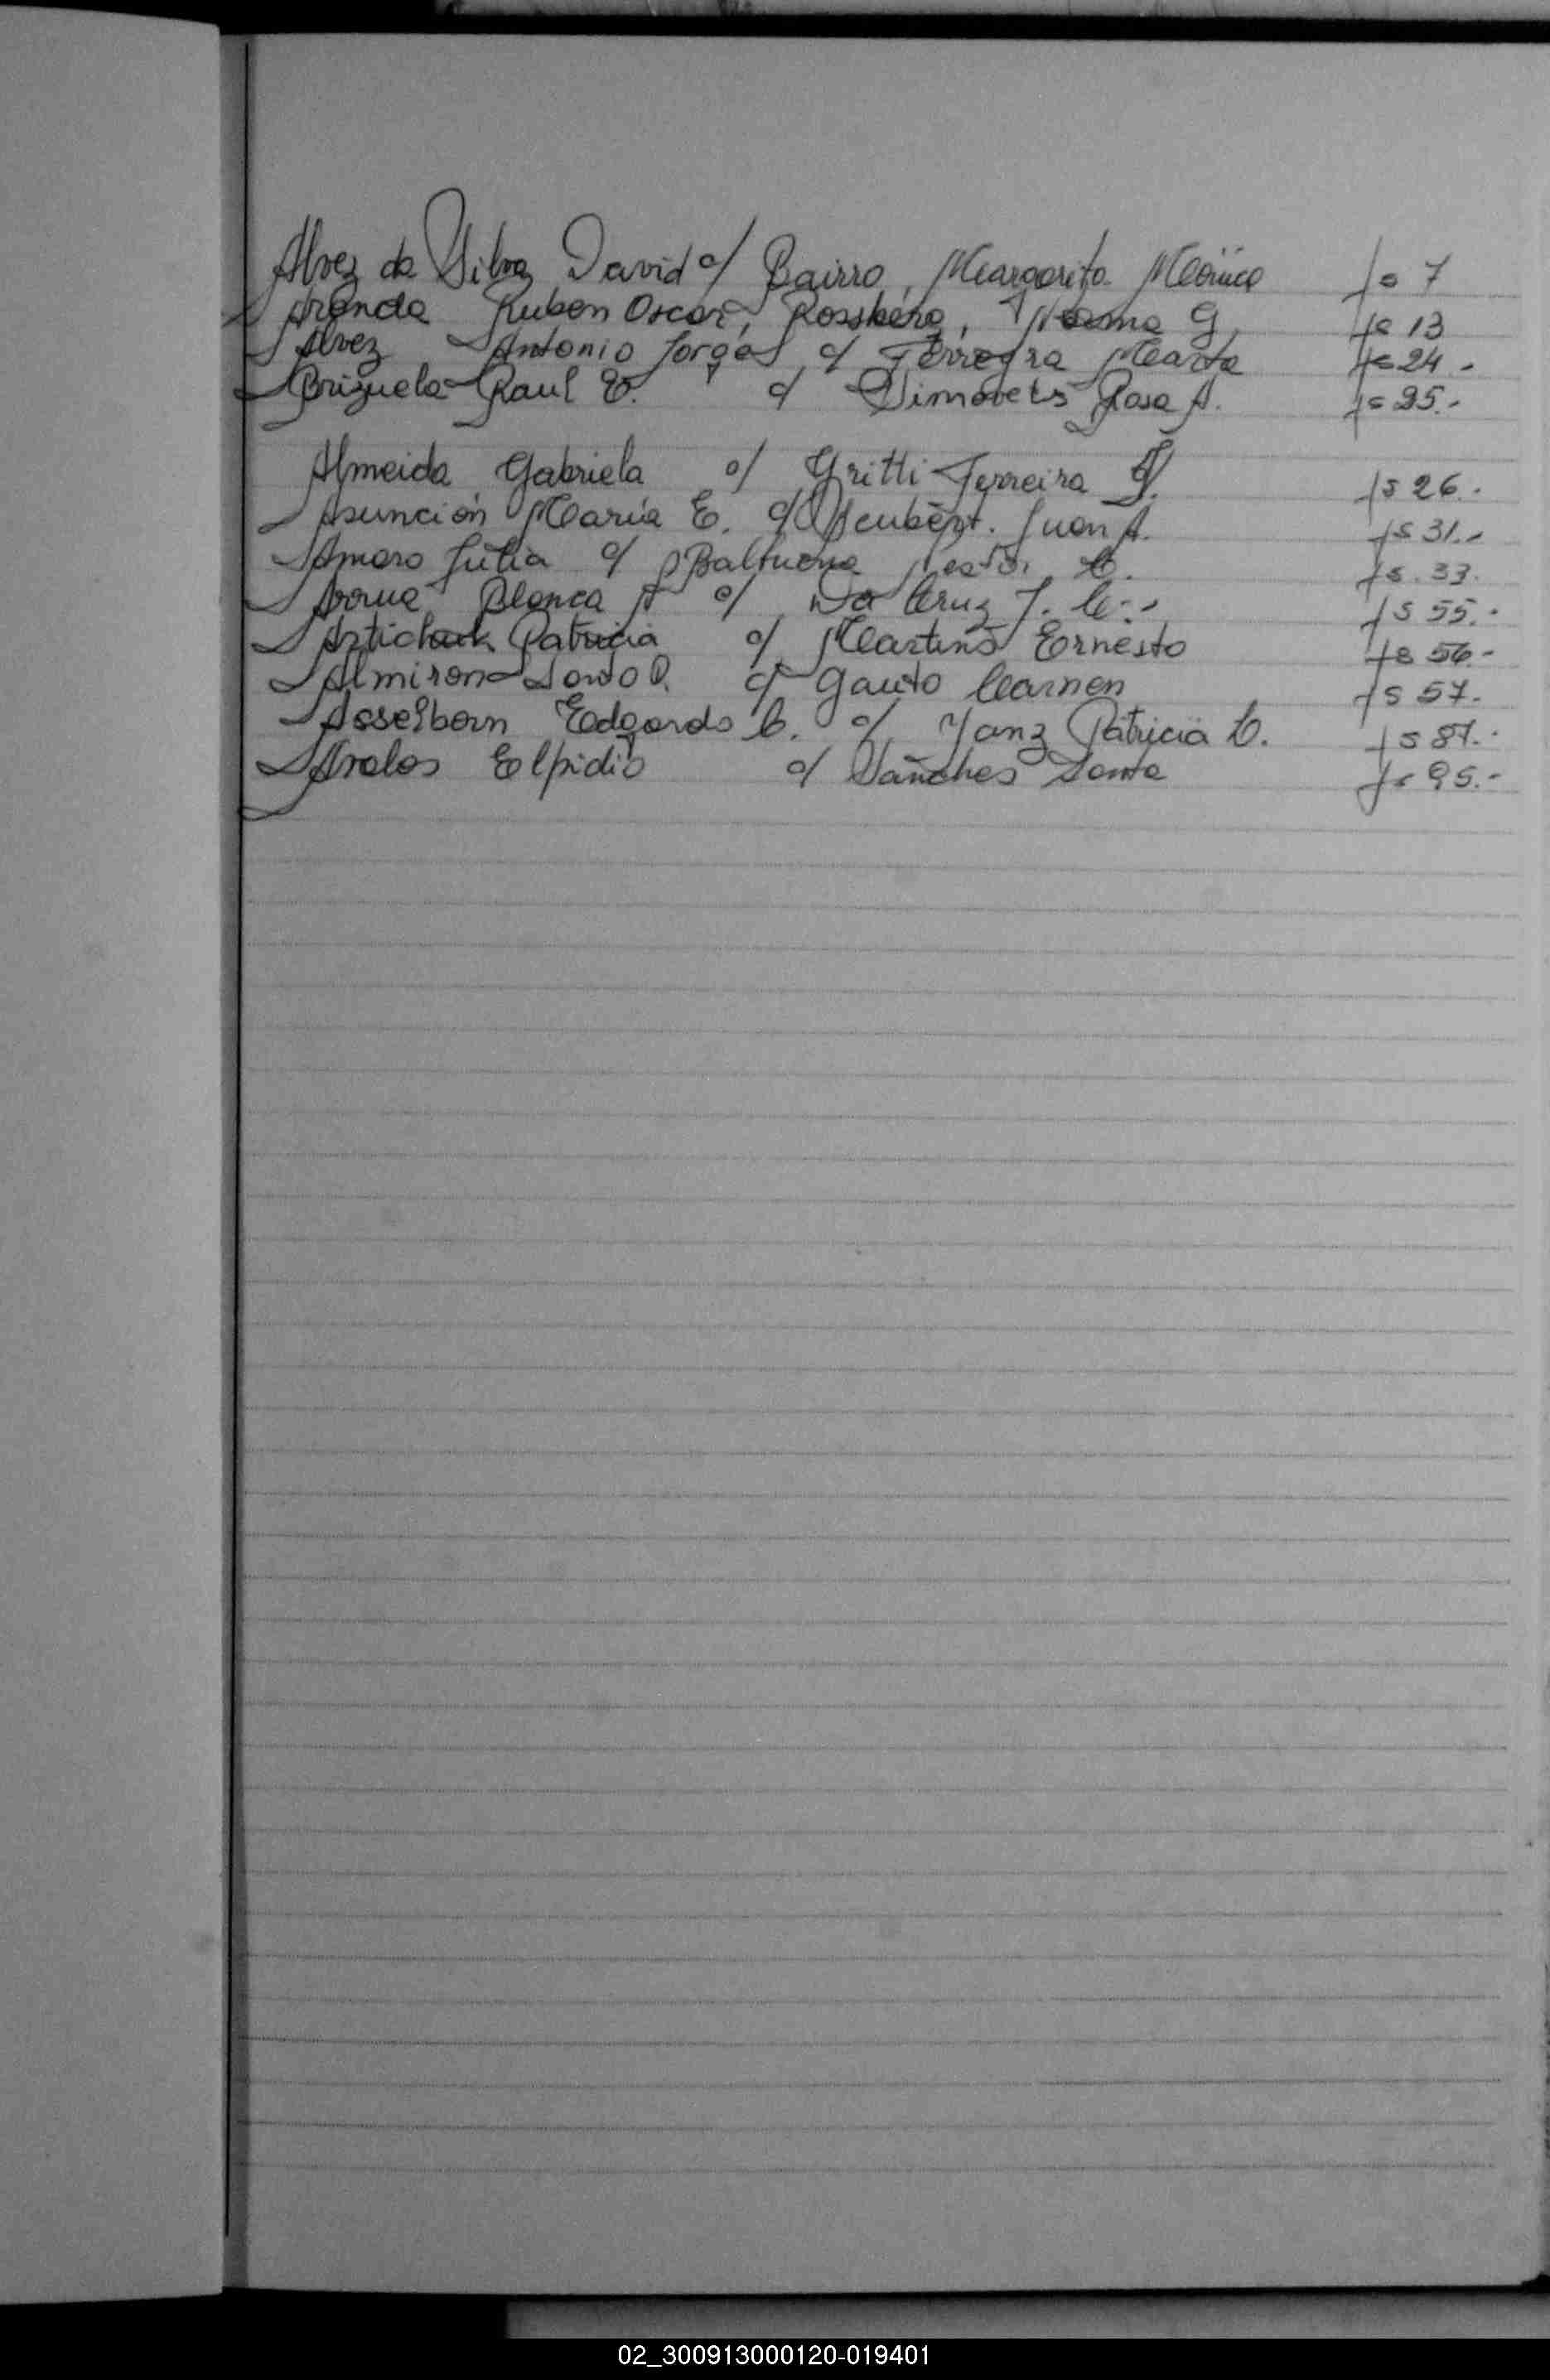 Alvez da Silva David c/ Bairro, Margarita Mónica fs 7
Aranda Ruben Oscar, Rossberg, Norma G fs 13
Alvez Antonio Jorge c/ Ferreyra Marta fs 24.-
Brizuela Raul E. c/ Rosa A. fs 25.-
Almeida Gabriela c/ Gritti Ferreira fs 26.-
Asunción María E. c/ Neubert. Juan A. fs 31.-
Amaro Julia c/ Nestor fs. 33.
Blanca A c/ Da Cruz J. C.- fs 55.-
Patricia c/ Martins Ernesto fs 56.-
Almiron Santo O. c/ Gauto Carmen fs 57.-
Asselborn Edgardo C. c/ Yanz Patricia C. fs 87.-
Avalos Elpidio c/ Sanches Santa fs 95.-
02_300913000120-019401